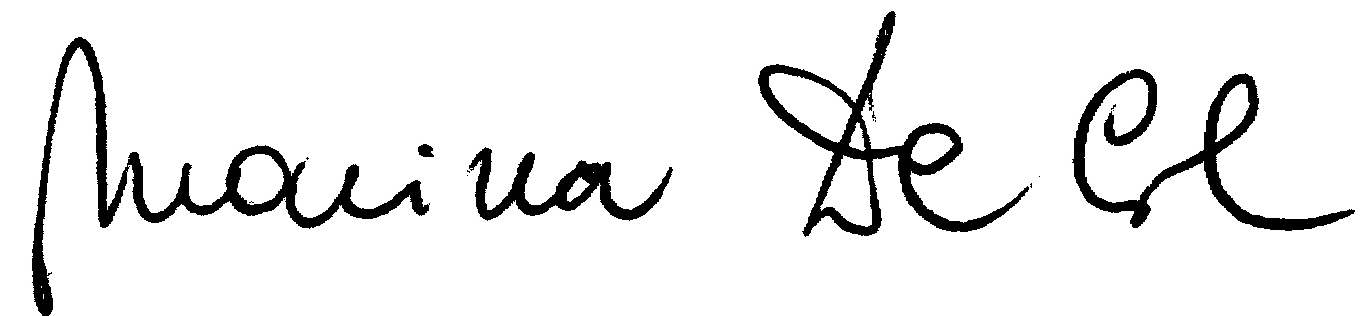 Marina De Col